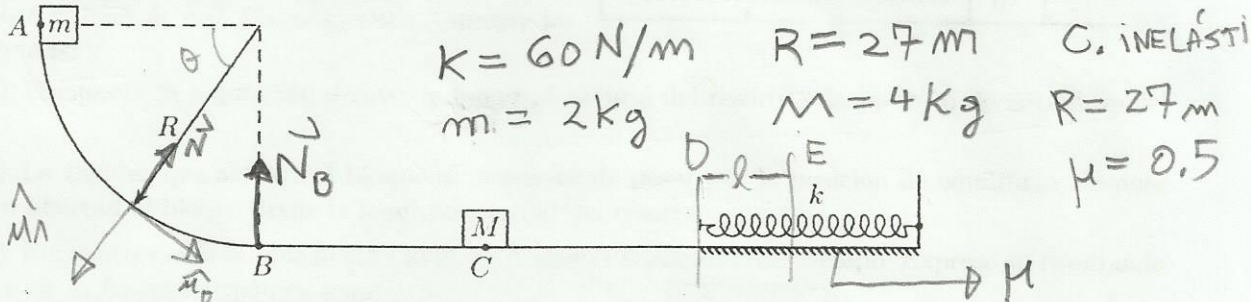 A m
θ
R
N⃗
N⃗_B
B
K = 60 N/m R = 27 m C. INELÁSTI
m = 2 Kg M = 4 Kg R = 27 m
μ = 0.5
D E
l
k
M
C
μ